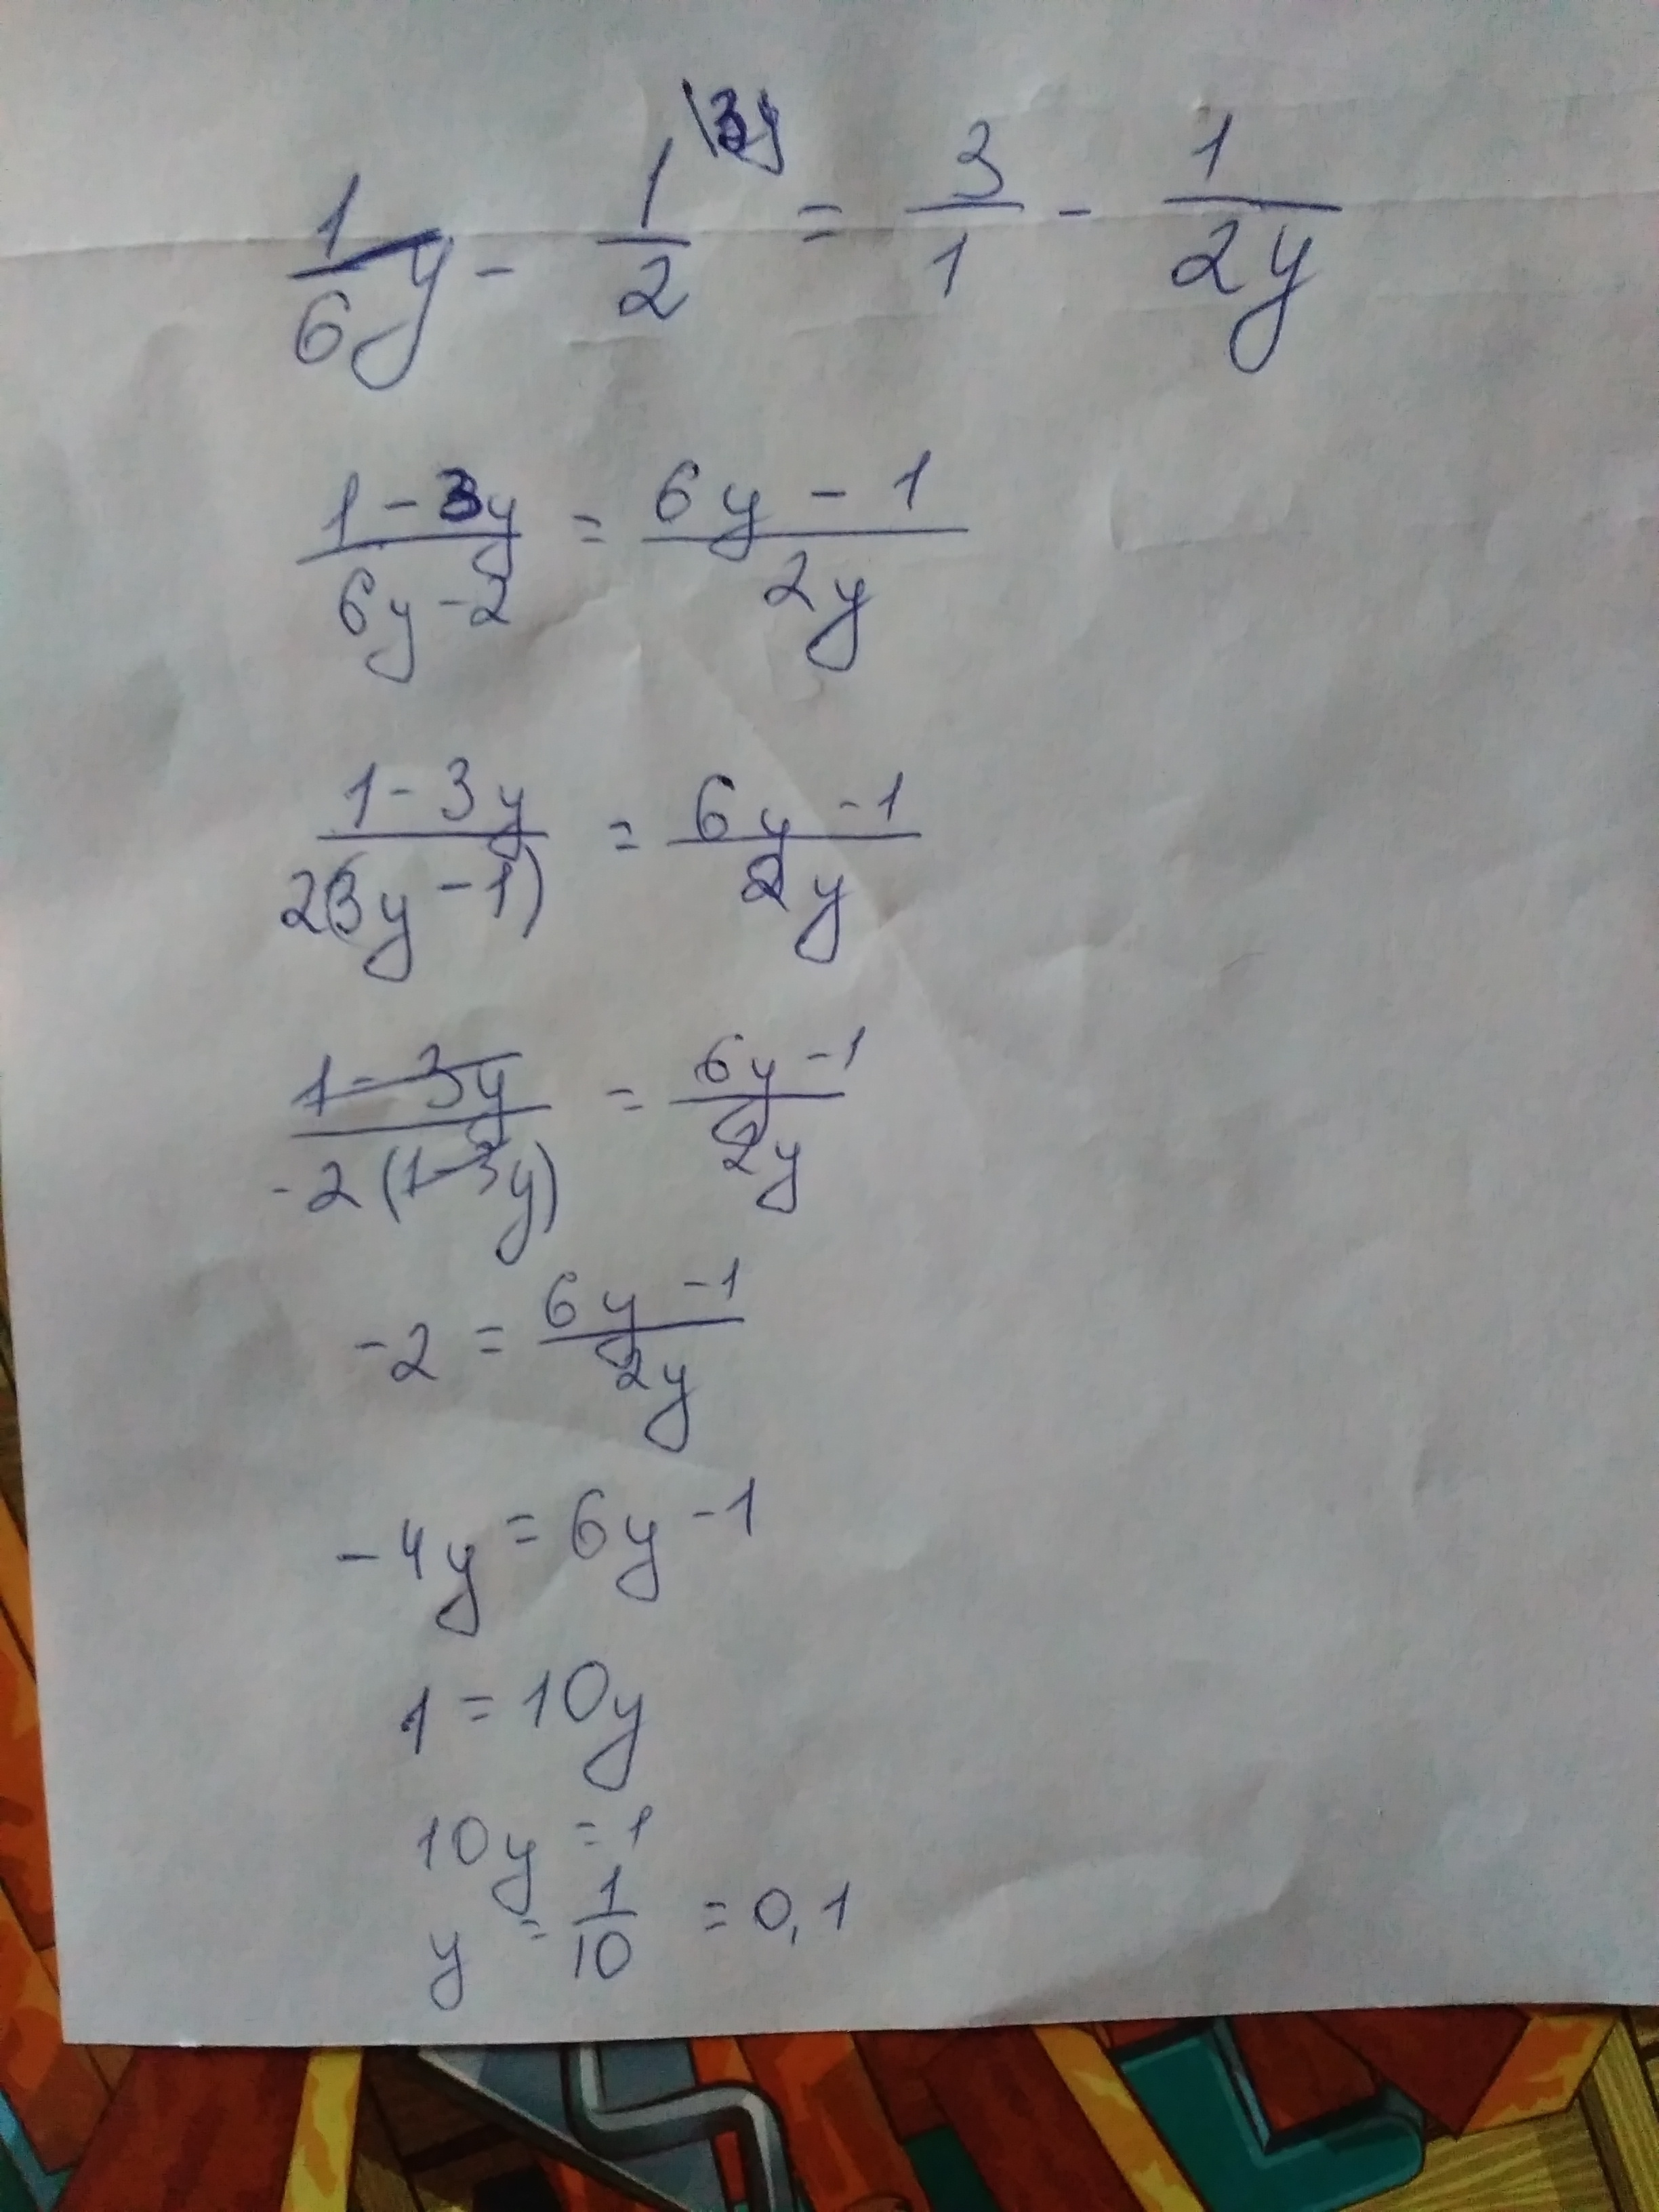 1/6y - 1/2 \3y = 3/1 - 1/2y
1-3y/6y-2 = 6y-1/2y
1-3y/2(3y-1) = 6y-1/2y
1-3y/-2(1-3y) = 6y-1/2y
-2 = 6y-1/2y
-4y = 6y-1
1 = 10y
10y = 1
y = 1/10 = 0,1